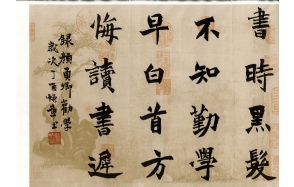 書時黑髮
不知勤學
早白首方
悔讀書遲
錄顏真卿勸學
歲次丁酉